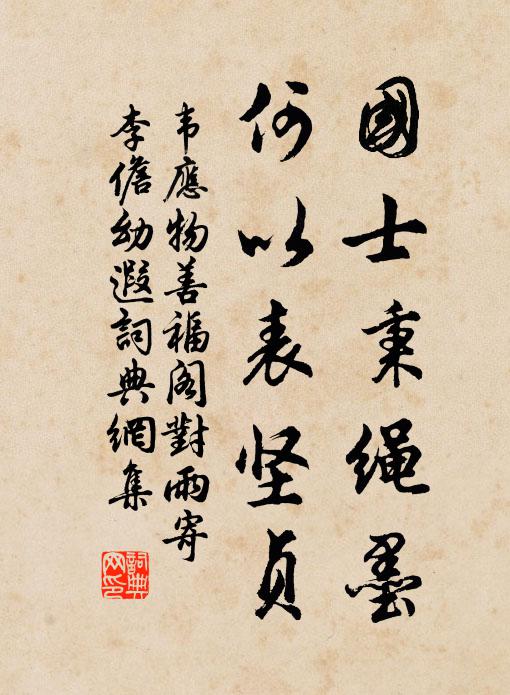 國士秉绳墨
何以表坚贞
韦應物善福阁對雨寄
李儋幼遐詞典網集
詞典
网印